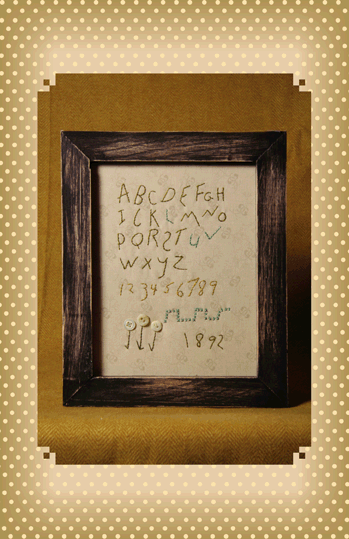 ABCDEFGH
IJKLMNO
PQRSTUV
WXYZ
123456789
1892